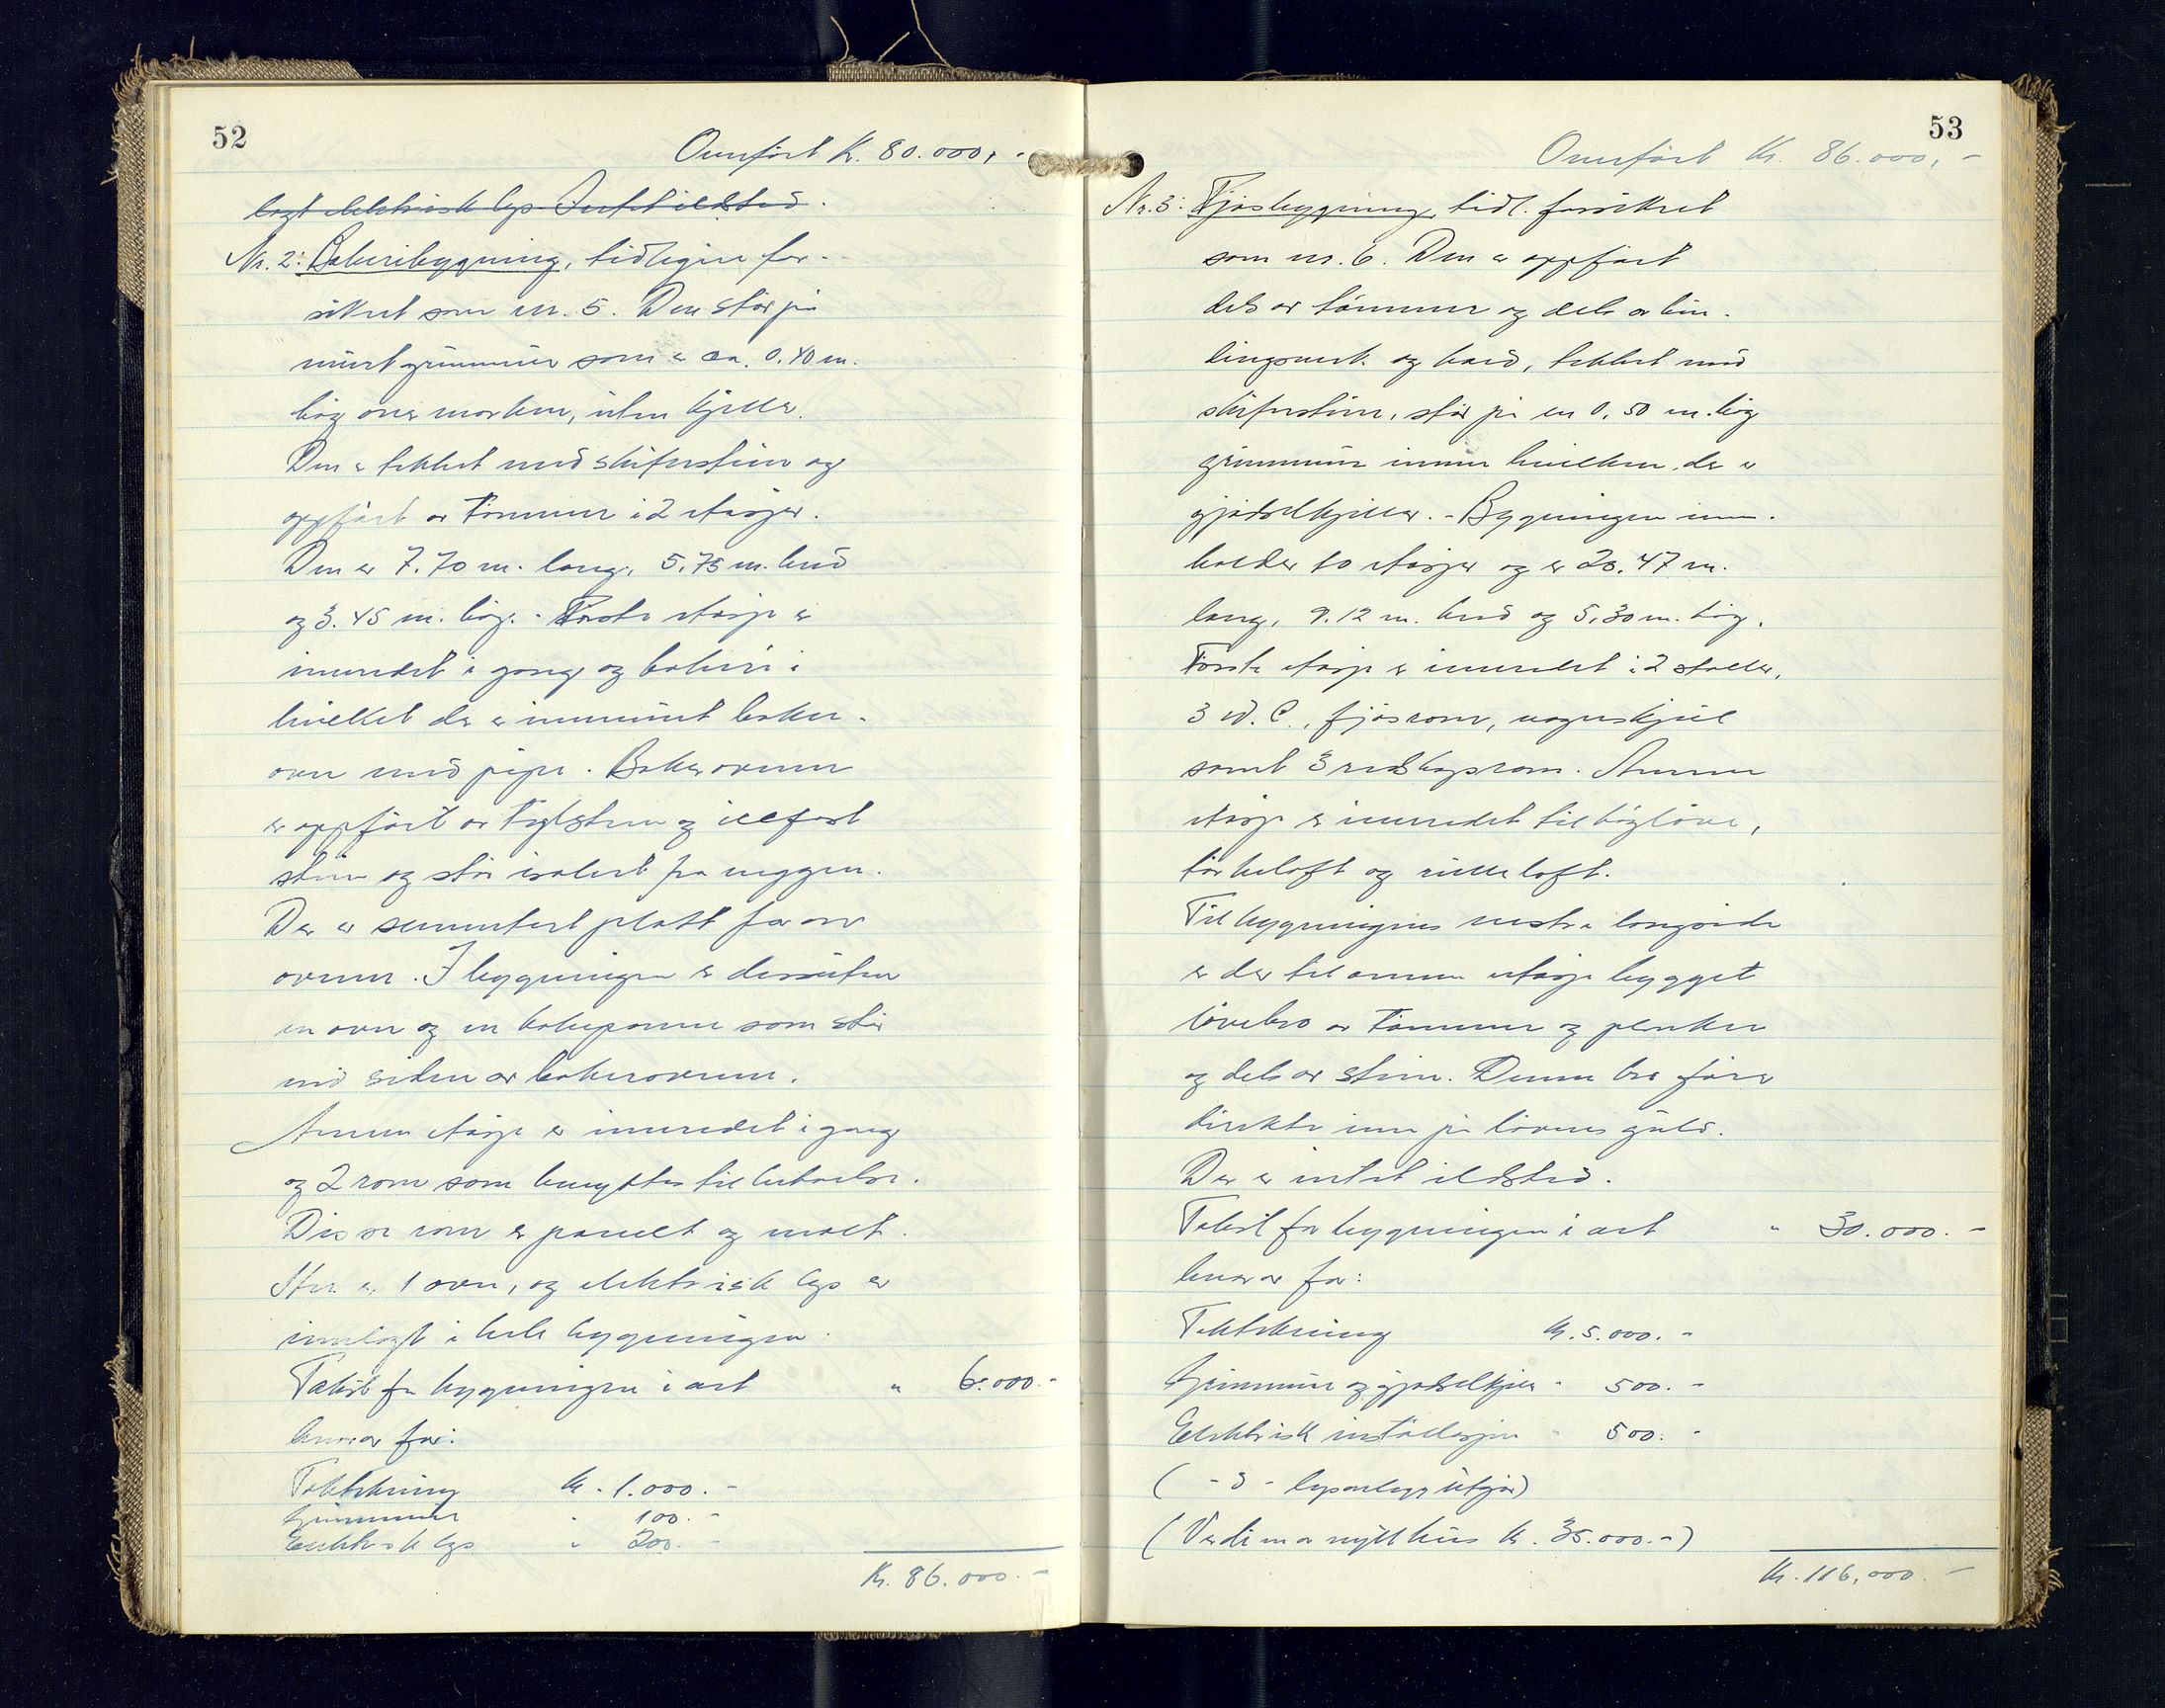 52
Overført Kr. 80.000,-
lagt elektrisk lys. Intet ildsted.
Nr. 2: Bakeribygning, tidligere for-
sikret som nr. 5. Den står på
muret grunnmur som er ca. 0.40 m.
høg over marken, uten kjeller.
Den er tekket med skiferstein og
oppført av tømmer i 2 etasjer.
Den er 7.70 m. lang, 5,75 m. bred
og 3.45 m. høg. - Første etasje er
innredet i gang og bakeri i
hvilket der er innmuret baker-
ovn med pipe. Bakerovnen
er oppført av teglsten og ildfast
stein og står isolert fra veggen.
Der er sementert platt foran
ovnen. I bygningen er dessuten
en ovn og en kokepanne som står
ved siden av bakerovnen.
Annen etasje er innredet i gang
og 2 rom som benyttes til beboelse.
Disse rom er panelt og malt.
Her er 1 ovn, og elektrisk lys er
innlagt i hele bygningen.
Takst for bygningen i alt " 6.000.-
herav for:
Taktekning Kr. 1.000.-
Grunnmur " 100.-
Elektrisk lys " 200.-
Kr. 86.000.-
53
Overført Kr. 86.000,-
Nr. 3: Fjøsbygning, tidl. forsikret
som nr. 6. Den er oppført
dels av tømmer og dels av bin-
dingsverk og bord, tekket med
skiferstein, står på en 0,50 m. høg
grunnmur innen hvilken der er
gjødselkjeller. - Bygningen inne-
holder to etasjer og er 20.47 m.
lang, 9.12 m. bred og 5,30 m. høg.
Første etasje er innredet i 2 staller,
3 W.C., fjøsrom, vognskjul
samt 3 redskapsrom. Annen
etasje er innredet til høyløve,
tørkeloft og rulleloft.
Til bygningens vestre langside
er der til annen etasje bygget
løvebro av tømmer og planker
og dels av stein. Denne bro fører
direkte inn på løvens gulv.
Der er intet ildsted.
Takst for bygningen i alt " 30.000.-
herav for:
Taktekning Kr. 5.000.-
Grunnmur og gjødselkjeller " 500.-
Elektrisk installasjon " 500.-
( - " - lysanlegg utgår)
(Verdi som nytt hus kr. 35.000.-)
Kr. 116,000.-